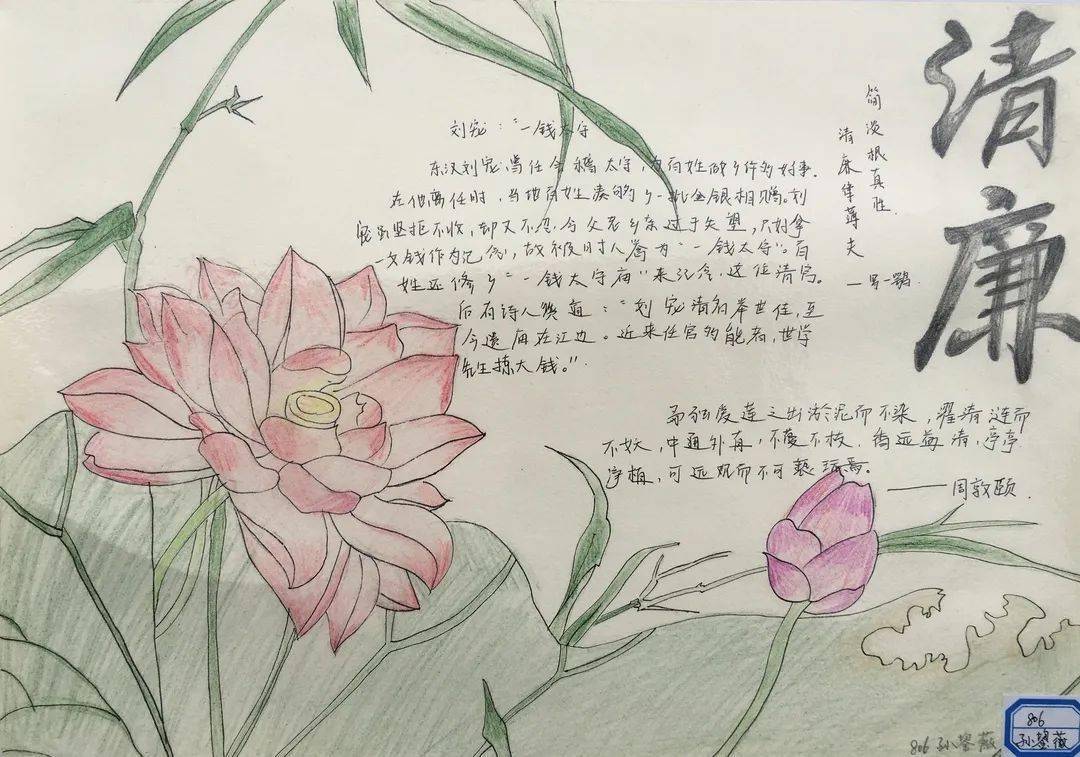 清廉
简淡根真性
清廉集薄夫
刘宠:“一钱太守”
东汉刘宠篤任会稽太守,为百姓做了许多好事.
在他离任时,当地百姓凑的了一批金银相赠。刘
宠虽坚拒不收,却又不忍令父老乡亲过于失望,只好拿
一文钱作为纪念,故被时人誉为“一钱太守”。百
姓还修了“一钱太守庙”来纪念这位清官。
后有诗人赞道:“刘宠清名举世佳,至
今遗庙在江边。近来仕官多能者,世学
先生拣大钱。”
予独爱莲之出淤泥而不染,濯清涟而
不妖,中通外直,不蔓不枝.香远益清,亭亭
净植,可远观而不可亵玩焉。
——周敦颐.
806
孙
薇
806 孙
薇